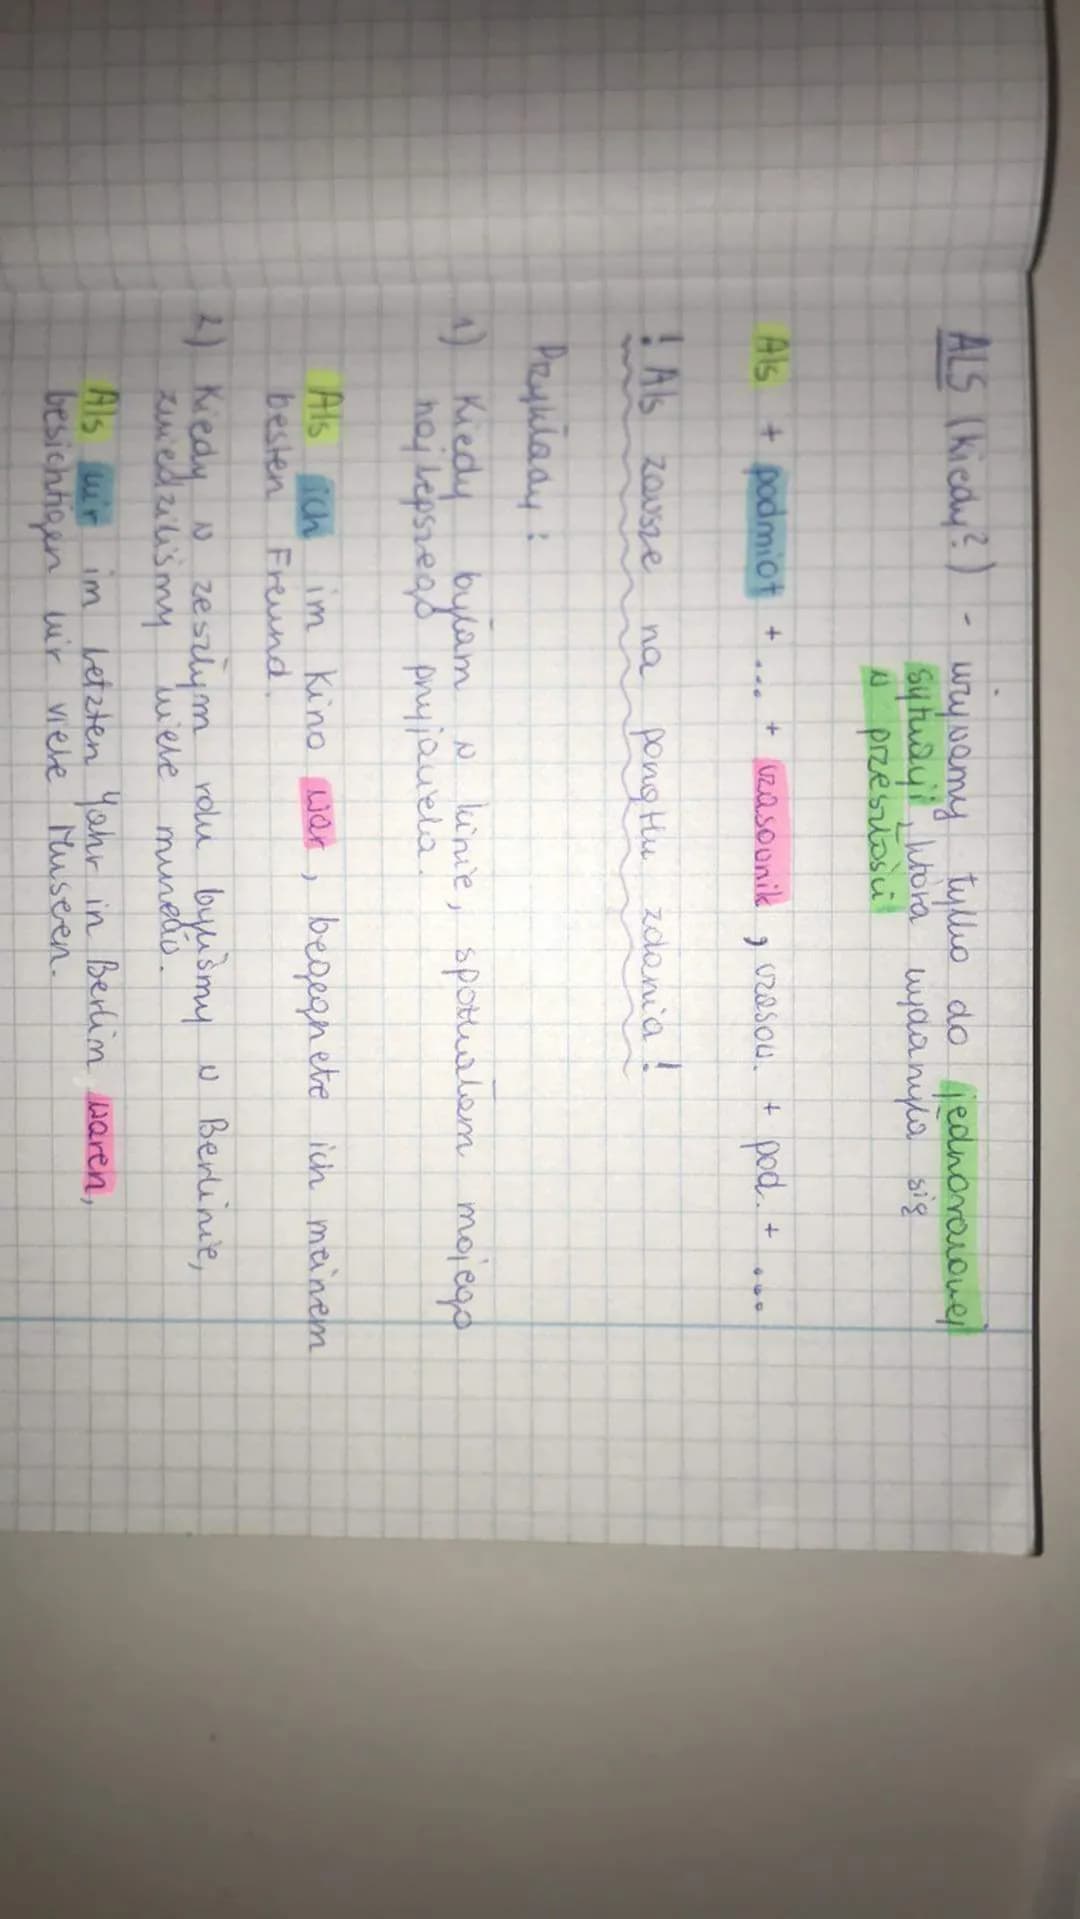 ALS (kiedy?) - używamy tylko do jednorazowej
sytuacji, która wydarzyła się
w przeszłości
Als + podmiot + ... + czasownik, czasow. + pod. + ....
! Als zawsze na początku zdania!
Przykłady:
1) Kiedy byłam w kinie, spotkałam mojego
najlepszego przyjaciela.
Als ich im Kino war, begegnete ich meinem
besten Freund.
2) Kiedy w zeszłym roku byliśmy w Berlinie,
zwiedziliśmy wiele muzeów.
Als wir im letzten Yahr in Berlin waren,
besichtigen wir viele Museen.